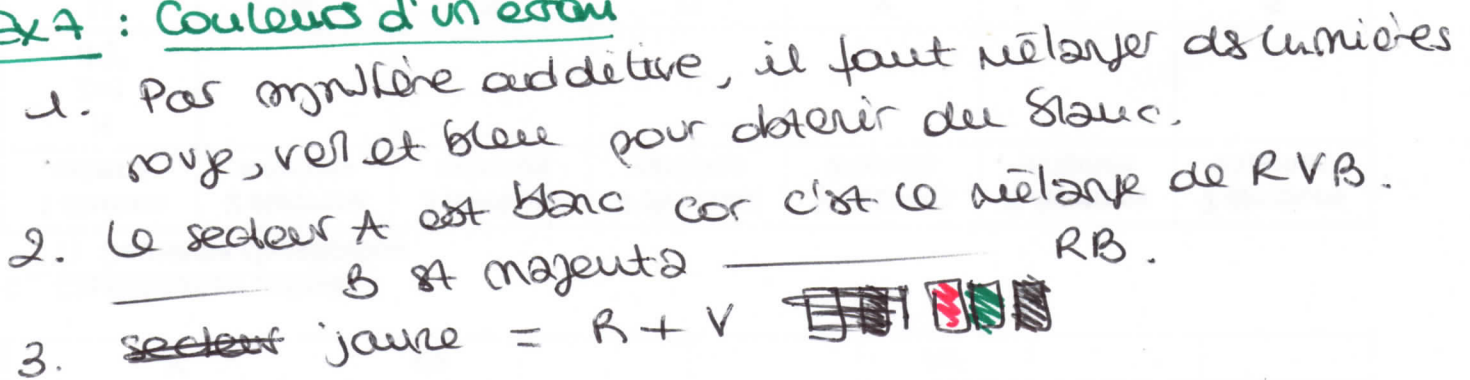 Ex 7 : Couleurs d'un écran
1. Par synthèse additive, il faut mélanger ds lumières
rouge, vert et bleu pour obtenir du blanc.
2. Le secteur A est blanc car c'est le mélange de RVB.
B st magenta RB.
3. secteur jaune = R + V